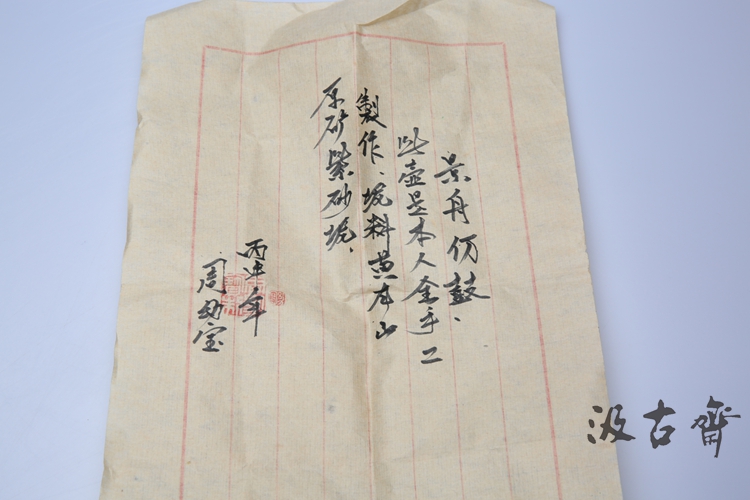 景舟仿鼓、
此壶是本人全手工
製作、坭料黄龙山
原矿紫砂坭、
丙申年
周幼宝
汲古齋